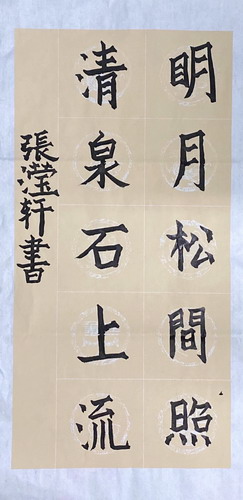 明月松間照
清泉石上流
張瀅轩書